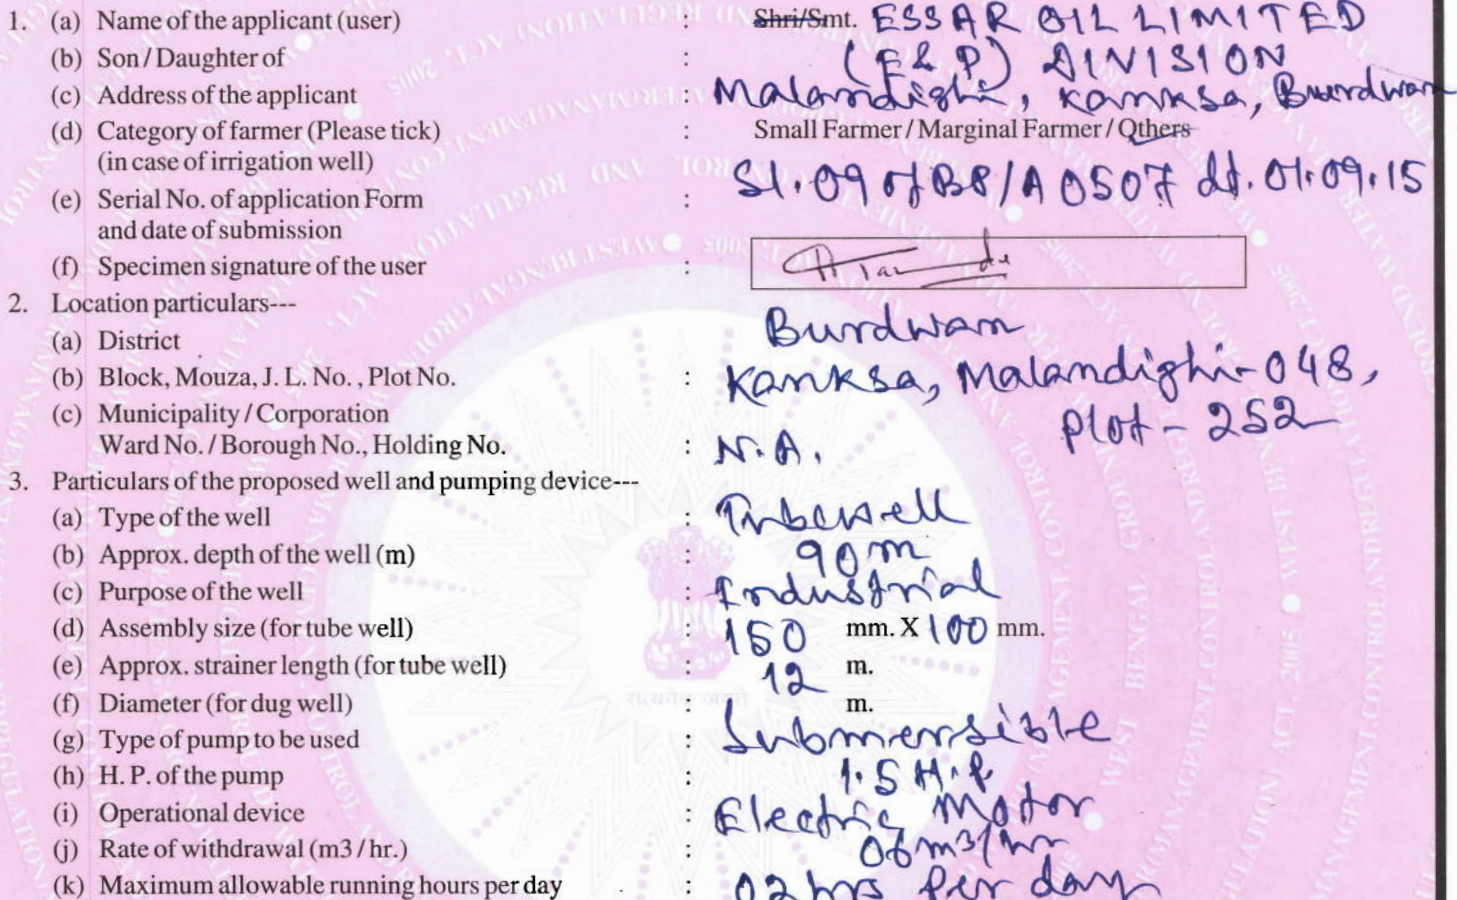 1. (a) Name of the applicant (user) : Shri/Smt. ESSAR OIL LIMITED
(b) Son / Daughter of : (E & P) DIVISION
(c) Address of the applicant : Malandighi, Kanksa, Burdwan
(d) Category of farmer (Please tick) : Small Farmer / Marginal Farmer / Others
(in case of irrigation well)
(e) Serial No. of application Form : Sl. 09 of B8/A 0507 dt. 01.09.15
and date of submission
(f) Specimen signature of the user :
2. Location particulars---
(a) District Burdwan
(b) Block, Mouza, J. L. No. , Plot No. : Kanksa, Malandighi-048,
(c) Municipality / Corporation Plot - 252
Ward No. / Borough No., Holding No. : N.A.
3. Particulars of the proposed well and pumping device---
(a) Type of the well : Tubewell
(b) Approx. depth of the well (m) : 90 m
(c) Purpose of the well : Industrial
(d) Assembly size (for tube well) : 150 mm. X 100 mm.
(e) Approx. strainer length (for tube well) : 12 m.
(f) Diameter (for dug well) : m.
(g) Type of pump to be used : Submersible
(h) H. P. of the pump : 1.5 H.P.
(i) Operational device : Electric Motor
(j) Rate of withdrawal (m3 / hr.) : 06 m3/hr
(k) Maximum allowable running hours per day : 02 hrs Per day
सत्यमेव जयते